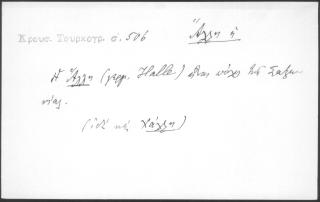 Κρουσ. Τουρκογρ. σ. 506
Ἅλλη ἡ
Ἡ Ἅλλη (γερμ. Halle) εἶναι πόλις τῆς Σαξω-
νίας.
(ἰδὲ καὶ Χάλλη)